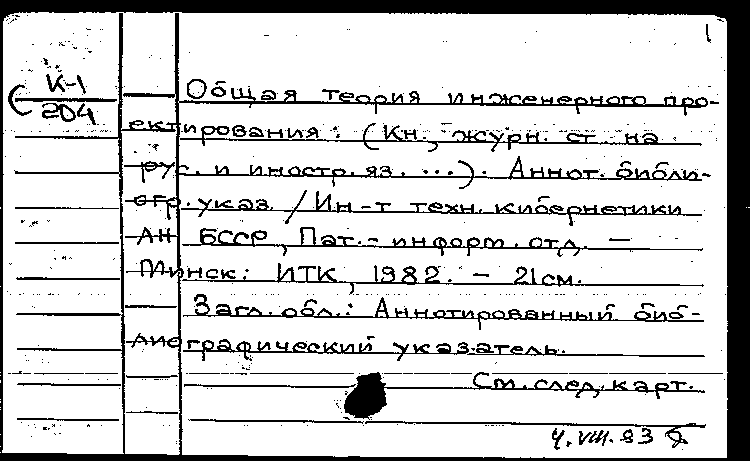 1
К-1
204
Общая теория инженерного про-
ектирования: (Кн., журн. ст. на
рус. и иностр. яз. ...). Аннот. библи-
огр. указ. / Ин-т техн. кибернетики
АН БССР, Пат.- информ. отд. —
Минск: ИТК, 1982. - 21 см.
Загл. обл.: Аннотированный биб-
лиографический указатель.
См. след. карт.
4.VIII.83